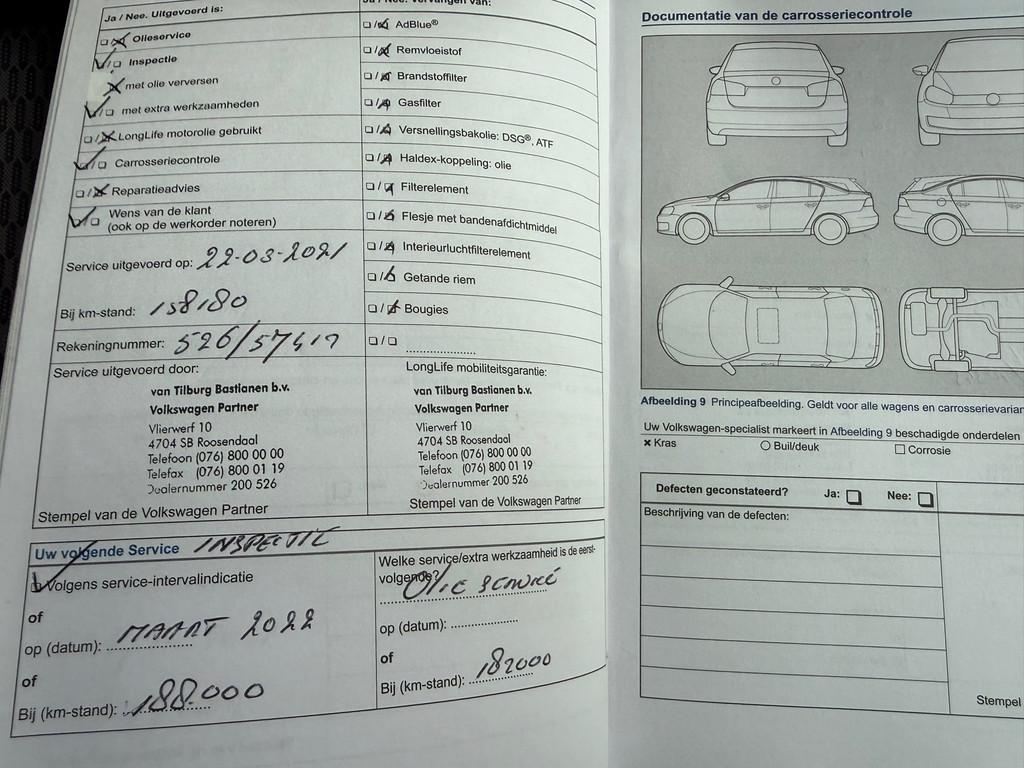 Ja / Nee. Uitgevoerd is:
Olieservice
Inspectie
met olie verversen
met extra werkzaamheden
LongLife motorolie gebruikt
Carrosseriecontrole
Reparatieadvies
Wens van de klant
(ook op de werkorder noteren)
Service uitgevoerd op: 22-03-2021
Bij km-stand: 158180
Rekeningnummer: 526/57417
Service uitgevoerd door:
van Tilburg Bastianen b.v.
Volkswagen Partner
Vlierwerf 10
4704 SB Roosendaal
Telefoon (076) 800 00 00
Telefax (076) 800 01 19
Dealernummer 200 526
Stempel van de Volkswagen Partner
Ja / Nee. Vervangen van:
AdBlue®
Remvloeistof
Brandstoffilter
Gasfilter
Versnellingsbakolie: DSG®, ATF
Haldex-koppeling: olie
Filterelement
Flesje met bandenafdichtmiddel
Interieurluchtfilterelement
Getande riem
Bougies
LongLife mobiliteitsgarantie:
van Tilburg Bastianen b.v.
Volkswagen Partner
Vlierwerf 10
4704 SB Roosendaal
Telefoon (076) 800 00 00
Telefax (076) 800 01 19
Dealernummer 200 526
Stempel van de Volkswagen Partner
Uw volgende Service INSPECTIE
Volgens service-intervalindicatie
of
op (datum): MAART 2022
of
Bij (km-stand): 188.000
Welke service/extra werkzaamheid is de eerst-
volgende?
OLIE SERVICE
op (datum):
of
Bij (km-stand): 182000
Documentatie van de carrosseriecontrole
Afbeelding 9 Principeafbeelding. Geldt voor alle wagens en carrosserievarian
Uw Volkswagen-specialist markeert in Afbeelding 9 beschadigde onderdelen
Kras
Buil/deuk
Corrosie
Defecten geconstateerd? Ja: Nee:
Beschrijving van de defecten:
Stempel